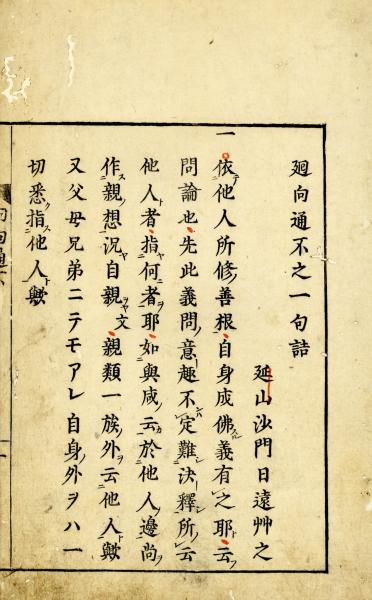 廻向通不之一句詰
延山沙門日遠艸之
一依他人所修善根自身成佛義有之耶云云
問論也先此義問意趣不定難決釋所云
他人者指何者耶如與咸云於他人邊尚
作親想況自親文親類一族外云他人歟
又父母兄弟ニテモアレ自身外ヲハ一
切悉指他人歟